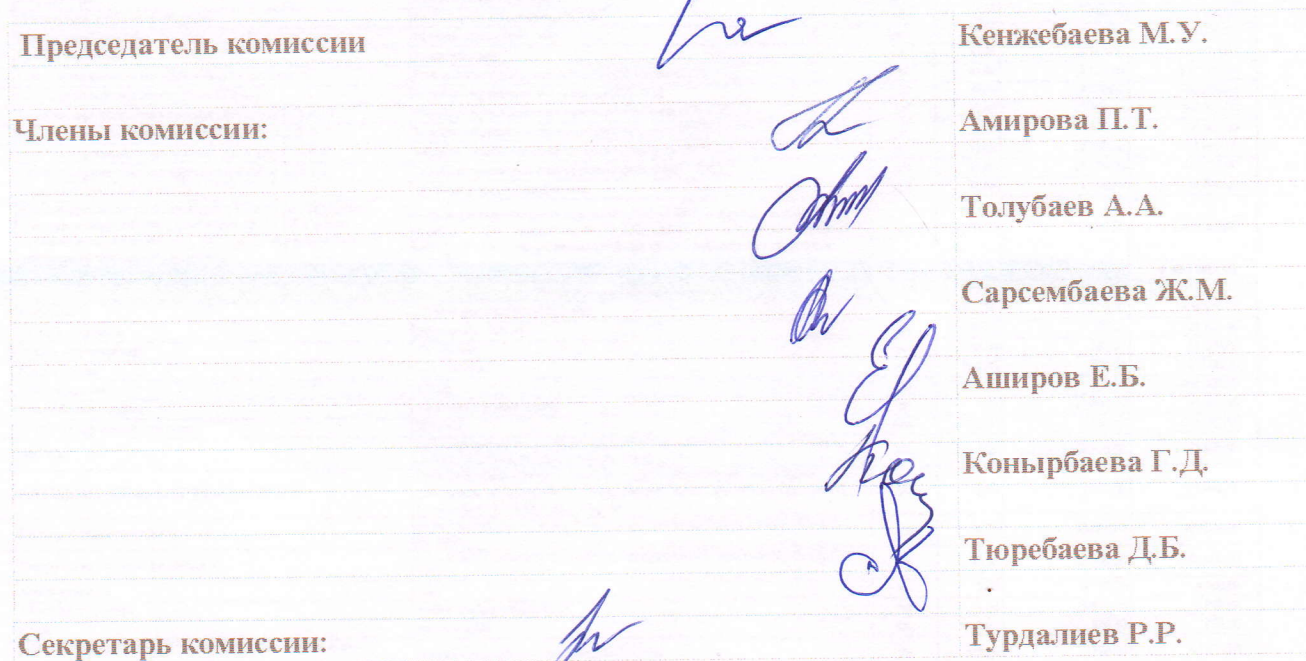 Председатель комиссии Кенжебаева М.У.
Члены комиссии: Амирова П.Т.
Толубаев А.А.
Сарсембаева Ж.М.
Аширов Е.Б.
Конырбаева Г.Д.
Тюребаева Д.Б.
Секретарь комиссии: Турдалиев Р.Р.